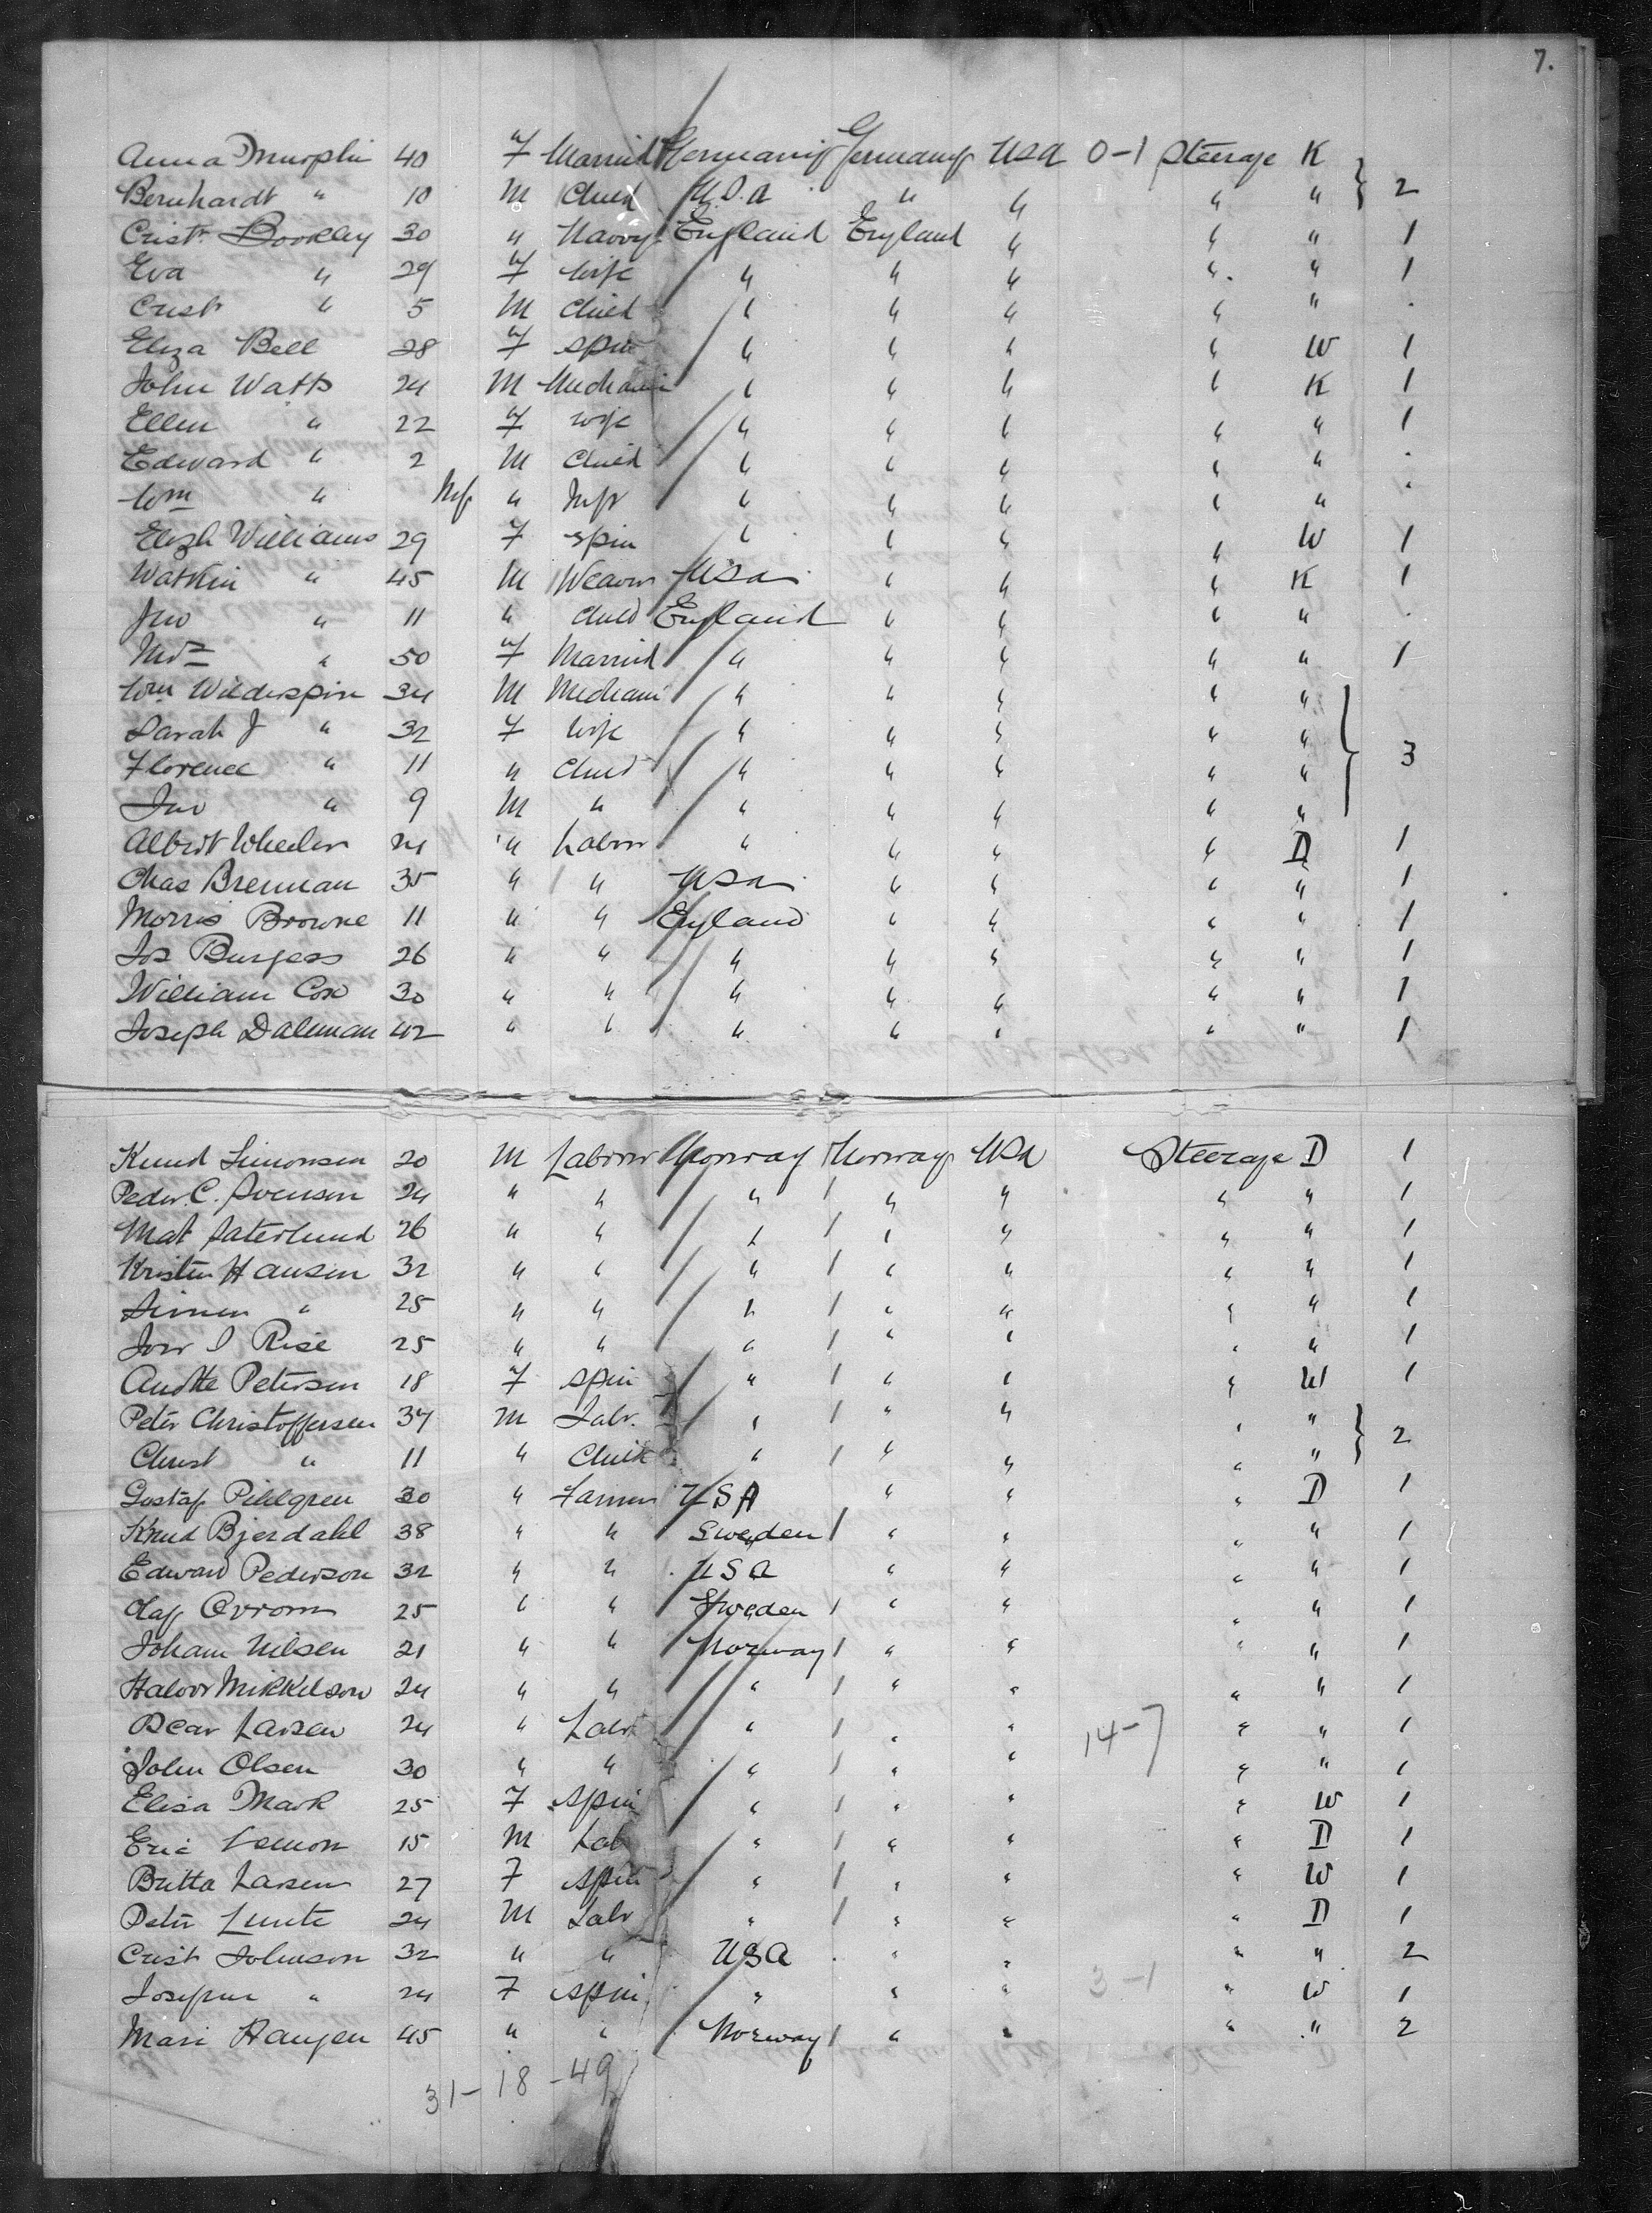 7.
Anna Murphi 40 F Married Germany Germany USA 0-1 Steerage K
Bernhardt " 10 M Child U.S.A " " " " } 2
Crist. Bookley 30 " Navvy England England " " " 1
Eva " 29 F Wife " " " " " 1
Crist " 5 M Child " " " " " .
Eliza Bell 28 F Spin " " " " W 1
John Watts 24 M Mechani " " " " K 1
Ellen " 22 F Wife " " " " " 1
Edward " 2 M Child " " " " " .
Wm " Inf " Inf " " " " " .
Elizh Williams 29 F Spin " " " " W 1
Watkin " 45 M Weaver USA " " " K 1
Jno " 11 " Child England " " " " .
Mrs " 50 F Married " " " " " 1
Wm Wilderspin 34 M Mechani " " " " "
Sarah J " 32 F Wife " " " " "
Florence " 11 " Child " " " " " } 3
Jno " 9 M " " " " " "
Albert Wheeler 24 " Labor " " " " D 1
Chas Brennan 35 " " USA " " " " 1
Morris Browne 11 " " England " " " " 1
Jos Burgess 26 " " " " " " " 1
William Cox 30 " " " " " " " 1
Joseph Daleman 42 " " " " " " " 1
Knud Simonsen 20 M Labour Norway Norway USA Steerage D 1
Peder C. Svensen 24 " " " " " " " 1
Mat Saterlund 26 " " " " " " " 1
Kristen Hansen 32 " " " " " " " 1
Simen " 25 " " " " " " " 1
Jorr I Rise 25 " " " " " " " 1
Petersen 18 F Spin " " " " W 1
Peter Christoffersen 37 M Labr. " " " " "
Christ " 11 " Child " " " " " } 2
Gustaf Pihlgren 30 " Farmer USA " " " D 1
Knud Bjerdahl 38 " " Sweden " " " " 1
Edward Pederson 32 " " USA " " " " 1
Olaf 25 " " Sweden " " " " 1
Johann Nilsen 21 " " Norway " " " " 1
Halvor Mikkelson 24 " " " " " " " 1
Larsen 24 " Labr " " " 14-7 " " 1
John Olsen 30 " " " " " " " 1
Elisa Mark 25 F Spin " " " " W 1
Eric Lemon 15 M Lab " " " " D 1
Britta Larsen 27 F Spin " " " " W 1
Peter Lunte 24 M Labr " " " " D 1
Crist Johnson 32 " " USA " " " " 2
Josephine " 24 F Spin " " " 3-1 " W 1
Mari Haugen 45 " " Norway " " " " 2
31-18-49